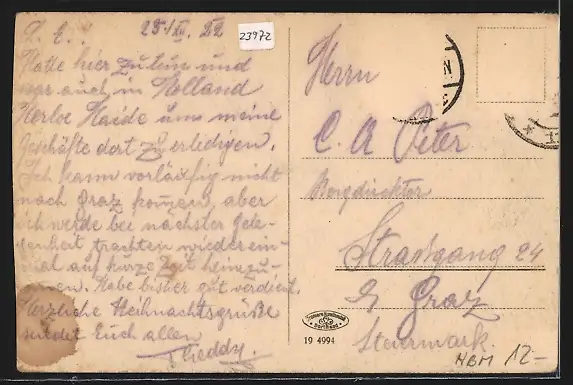 L. E.! 23./XII. 22
23972
Hatte hier zu tun und
war auch in Holland
Heerlo Haide um meine
Geschäfte dort zu erledigen.
Ich kann vorläufig nicht
nach Graz kommen, aber
ich werde bei nächster Gele-
genheit trachten wieder ein-
mal auf kurze Zeit heimzu-
Habe bisher gut verdient.
Herzliche Weihnachtsgrüße
sendet Euch allen
Theddy.
Herrn
C. A Peter
Bergdirektor
Strassgang 24
Graz
Steiermark.
19 4994
NBM 12-